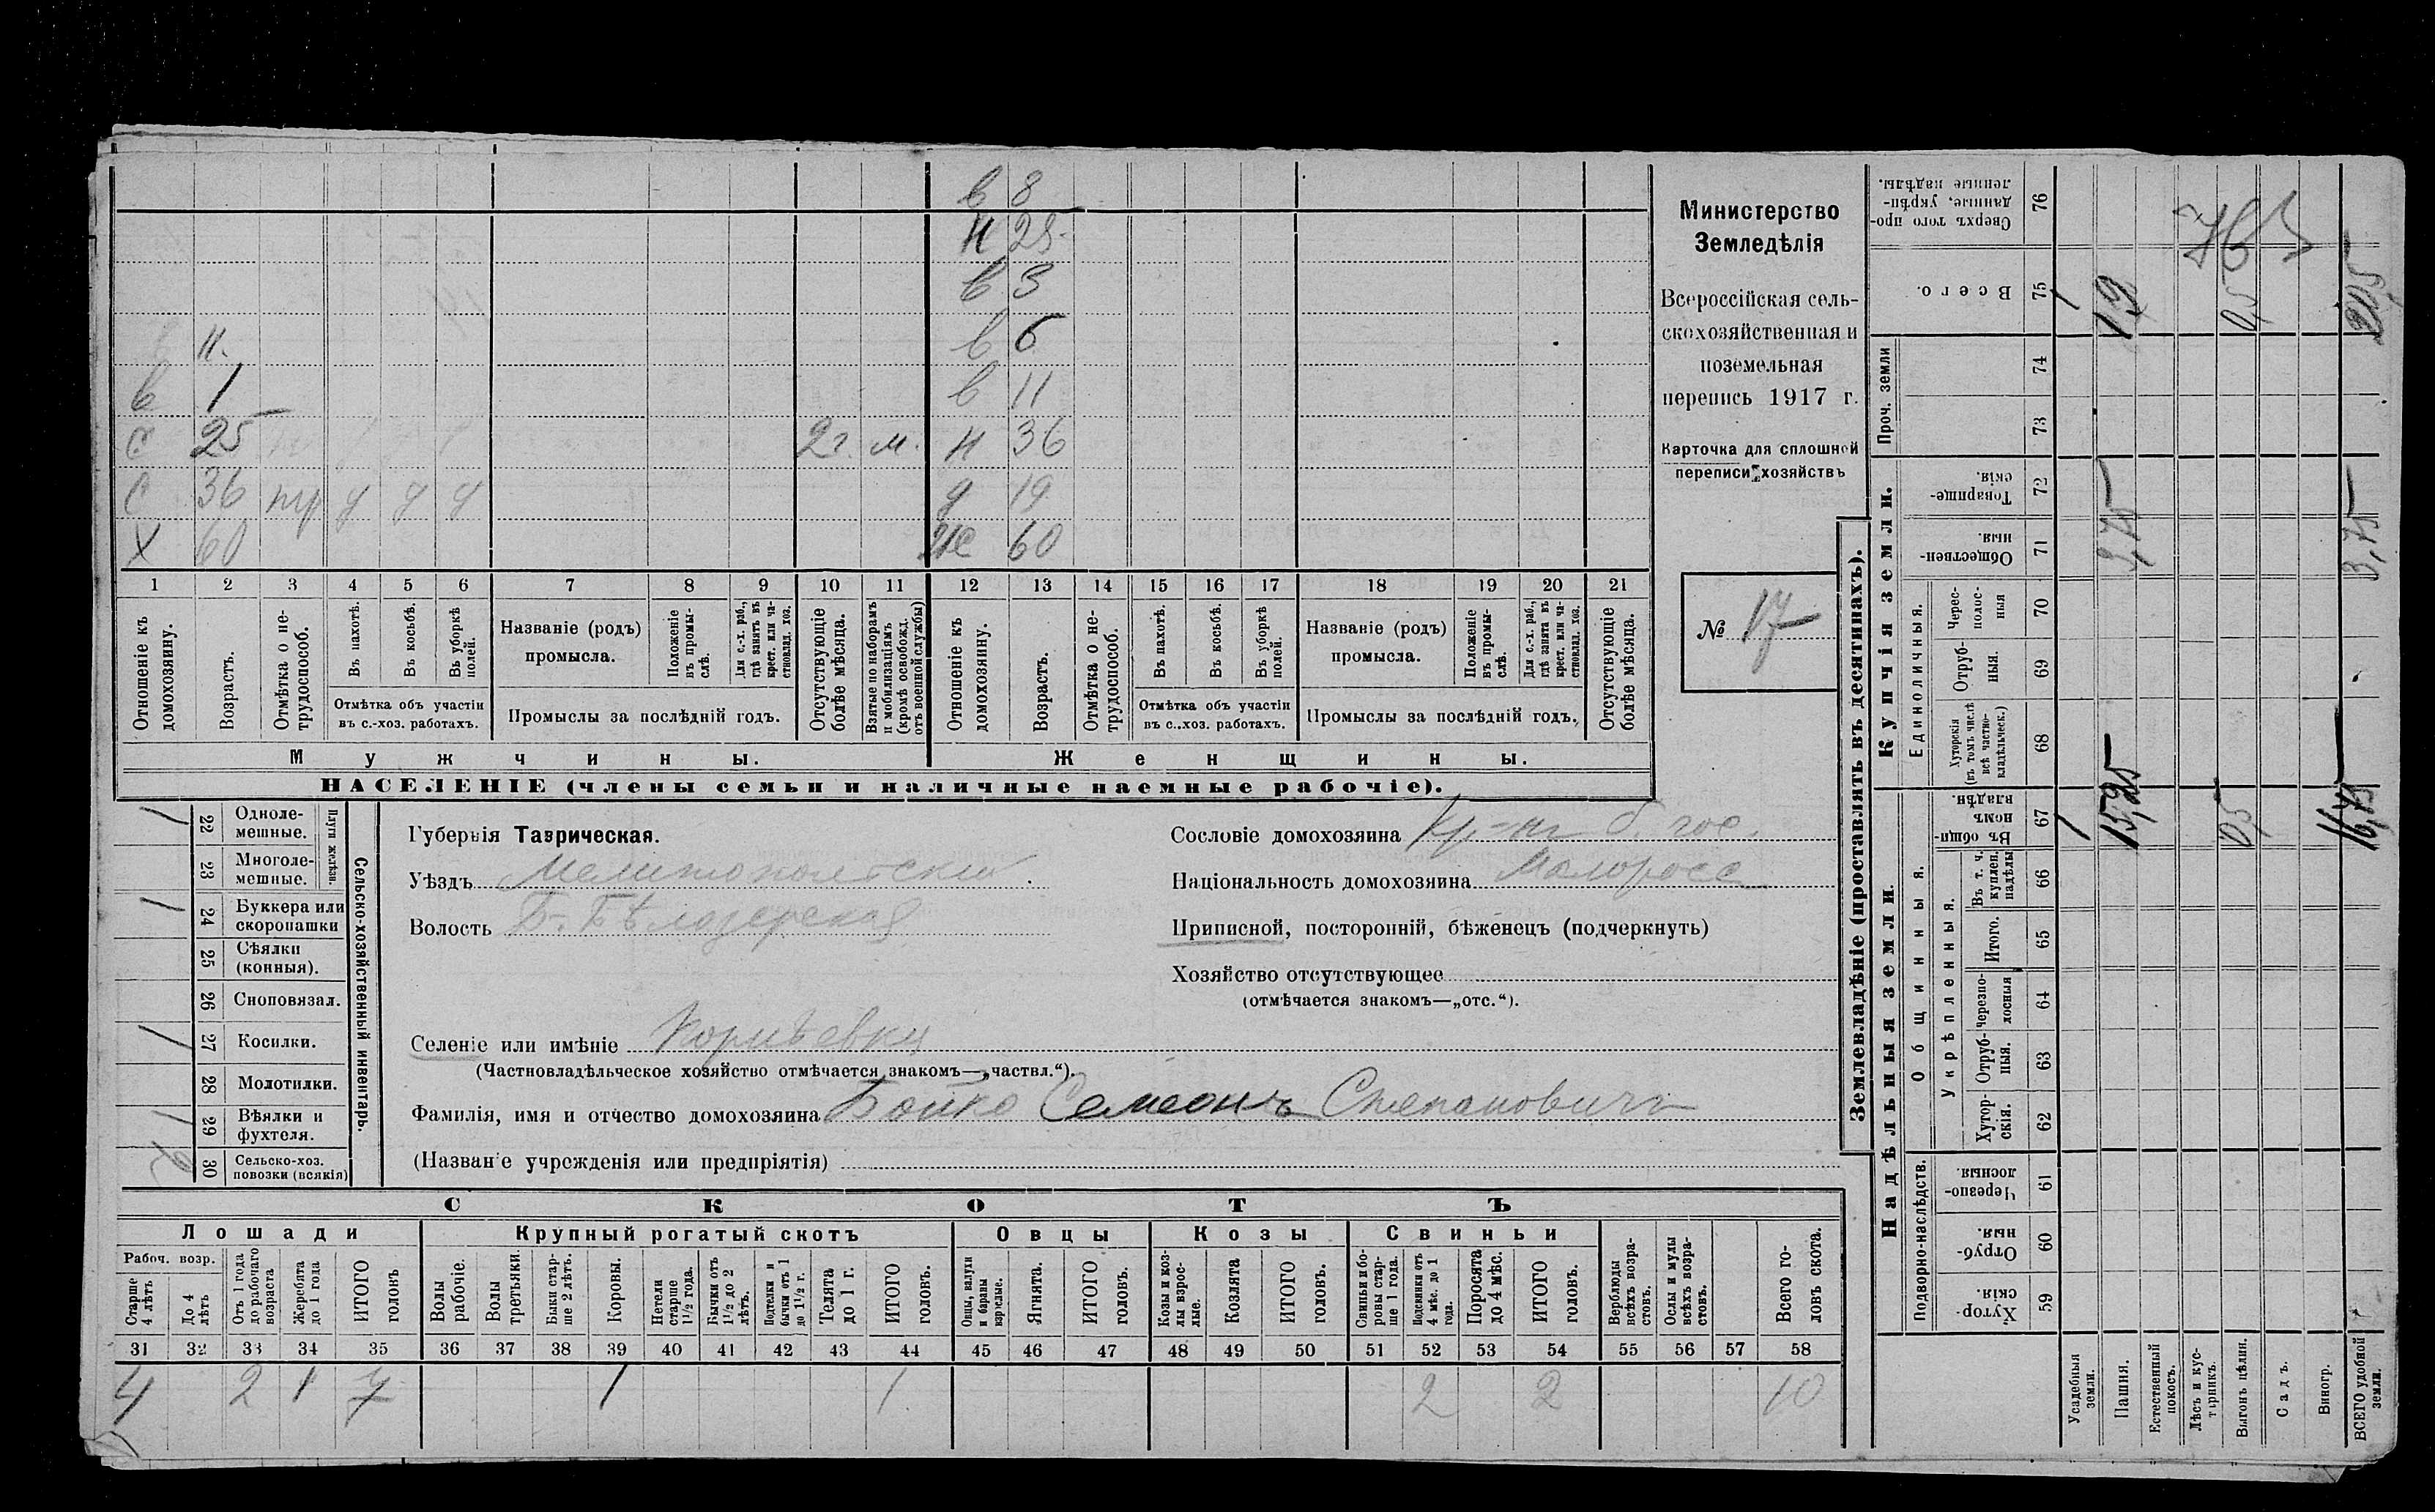 в 8
н 25
в 3
в 6
н.
в 1 в 11
с 25 2 г. м. н 36
с 36 пр у у у д 19
х 60 же 60
1 2 3 4 5 6 7 8 9 10 11 12 13 14 15 16 17 18 19 20 21
Отношеніе къ домохозяину.
Возрастъ.
Отмѣтка о не-трудоспособ.
Въ пахотѣ.
Въ косьбѣ.
Въ уборкѣ полей.
Отмѣтка объ участіи
въ с.-хоз. работахъ.
Названіе (родъ)
промысла.
Положеніе въ промы-слѣ.
Для с.-х. раб., гдѣ занятъ въ крест. или ча-стновлад. хоз.
Промыслы за послѣдній годъ.
Отсутствующіе болѣе мѣсяца.
Взятые по наборамъ и мобилизаціямъ (кромѣ освобожд. отъ военной службы)
Отношеніе къ домохозяину.
Возрастъ.
Отмѣтка о не-трудоспособ.
Въ пахотѣ.
Въ косьбѣ.
Въ уборкѣ полей.
Отмѣтка объ участіи
въ с..хоз. работахъ.
Названіе (родъ)
промысла.
Положеніе въ промы-слѣ.
Для с.-х. раб., гдѣ занята въ крест. или ча-стновлад. хоз.
Промыслы за послѣдній годъ.
Отсутствующіе болѣе мѣсяца.
Мужчины. Женщины.
НАСЕЛЕНІЕ (члены семьи и наличные наемные рабочіе).
Министерство
Земледѣлія
Всероссійская сель-
скохозяйственная и
поземельная
перепись 1917 г.
Карточка для сплошной
переписи хозяйствъ
№ 17
Сельско-хозяйственный инвентарь.
Плуги желѣзн.
1 22 Одноле-мешные.
23 Многоле-мешные.
1 24 Буккера или скоропашки
25 Сѣялки (конныя).
26 Сноповязал.
1 27 Косилки.
28 Молотилки.
1 29 Вѣялки и фухтеля.
2 30 Сельско-хоз. повозки (всякія)
Губернія Таврическая.
Уѣздъ Мелитопольскій
Волость Б.-Бѣлозерская
Селеніе или имѣніе Корнѣевка
(Частновладѣльческое хозяйство отмѣчается знакомъ—„частвл.“).
Фамилія, имя и отчество домохозяина Бойко Семеонъ Степановичъ
(Названіе учрежденія или предпріятія)
Сословіе домохозяина кр-нъ б. гос.
Національность домохозяина Малоросс
Приписной, посторонній, бѣженецъ (подчеркнуть)
Хозяйство отсутствующее
(отмѣчается знакомъ—„отс.“).
СКОТЪ
Лошади Крупный рогатый скотъ Овцы Козы Свиньи
Рабоч. возр.
Старше 4 лѣтъ
До 4 лѣтъ
Отъ 1 года до рабочаго возраста
Жеребята до 1 года
ИТОГО головъ
Волы рабочіе.
Волы третьяки.
Быки стар-ше 2 лѣтъ.
Коровы.
Нетели старше 1 1/2 года.
Бычки отъ 1 1/2 до 2 лѣтъ.
Подтелки и бычки отъ 1 до 1 1/2 г.
Телята до 1 г.
ИТОГО головъ.
Овцы, валухи и бараны взрослые.
Ягнята.
ИТОГО головъ.
Козы и коз-лы взрос-лые.
Козлята
ИТОГО головъ.
Свиньи и бо-ровы стар-ше 1 года.
Подсвинки отъ 4 мѣс. до 1 года.
Поросята до 4 мѣс.
ИТОГО головъ.
Верблюды всѣхъ возра-стовъ.
Ослы и мулы всѣхъ возра-стовъ.
Всего го-ловъ скота.
31 32 33 34 35 36 37 38 39 40 41 42 43 44 45 46 47 48 49 50 51 52 53 54 55 56 57 58
4 2 1 7 1 1 2 2 10
Землевладѣніе (проставлять въ десятинахъ).
Надѣльныя земли.
Купчія земли.
Проч. земли
Подворно-наслѣдств.
Общинныя.
Укрѣпленныя.
Единоличныя.
59 Хутор-скія.
60 Отруб-ныя.
61 Черезпо-лосныя.
62 Хутор-скія.
63 Отруб-ныя.
64 Черезпо-лосныя
65 Итого.
66 Въ т. ч. куплен. надѣлы
67 Въ общи-номъ владѣн.
68 Хуторскія (въ томъ числѣ всѣ частно-владѣльческ.)
69 Отруб-ныя.
70 Черес-полос-ныя
71 Обществен-ныя.
72 Товарище-скія.
73
74
75 Всего.
76 Сверхъ того про-данные, укрѣп-ленные надѣлы.
Усадебныя земли. 1 1
Пашня. 15,25 3,75 19
Естественный покосъ.
Лѣсъ и кус-тарникъ.
Выгонъ цѣлин. 0,5 0,5
Садъ.
Виногр.
ВСЕГО удобной земли. 16,75 3,75 20,5